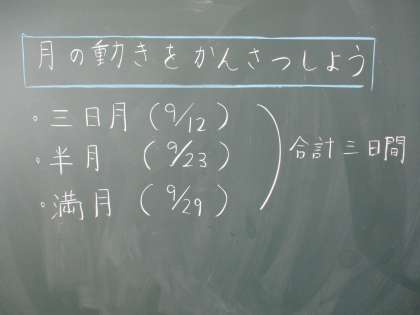 月の動きをかんさつしよう
・三日月（9/12）
・半月（9/23）
・満月（9/29）
合計三日間